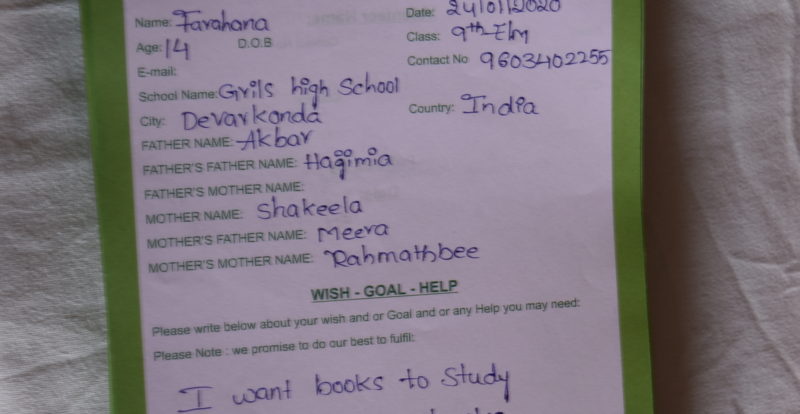 Name: Farahana Date: 24/01/2020
Age: 14 D.O.B Class: 9th-E/m
E-mail: Contact No 9603402255
School Name: Grils high School
City: Devarkonda Country: India
FATHER NAME: Akbar
FATHER'S FATHER NAME: Hagimia
FATHER'S MOTHER NAME:
MOTHER NAME: Shakeela
MOTHER'S FATHER NAME: Meera
MOTHER'S MOTHER NAME: Rahmathbee
WISH - GOAL - HELP
Please write below about your wish and or Goal and or any Help you may need:
Please Note : we promise to do our best to fulfil:
I want books to Study